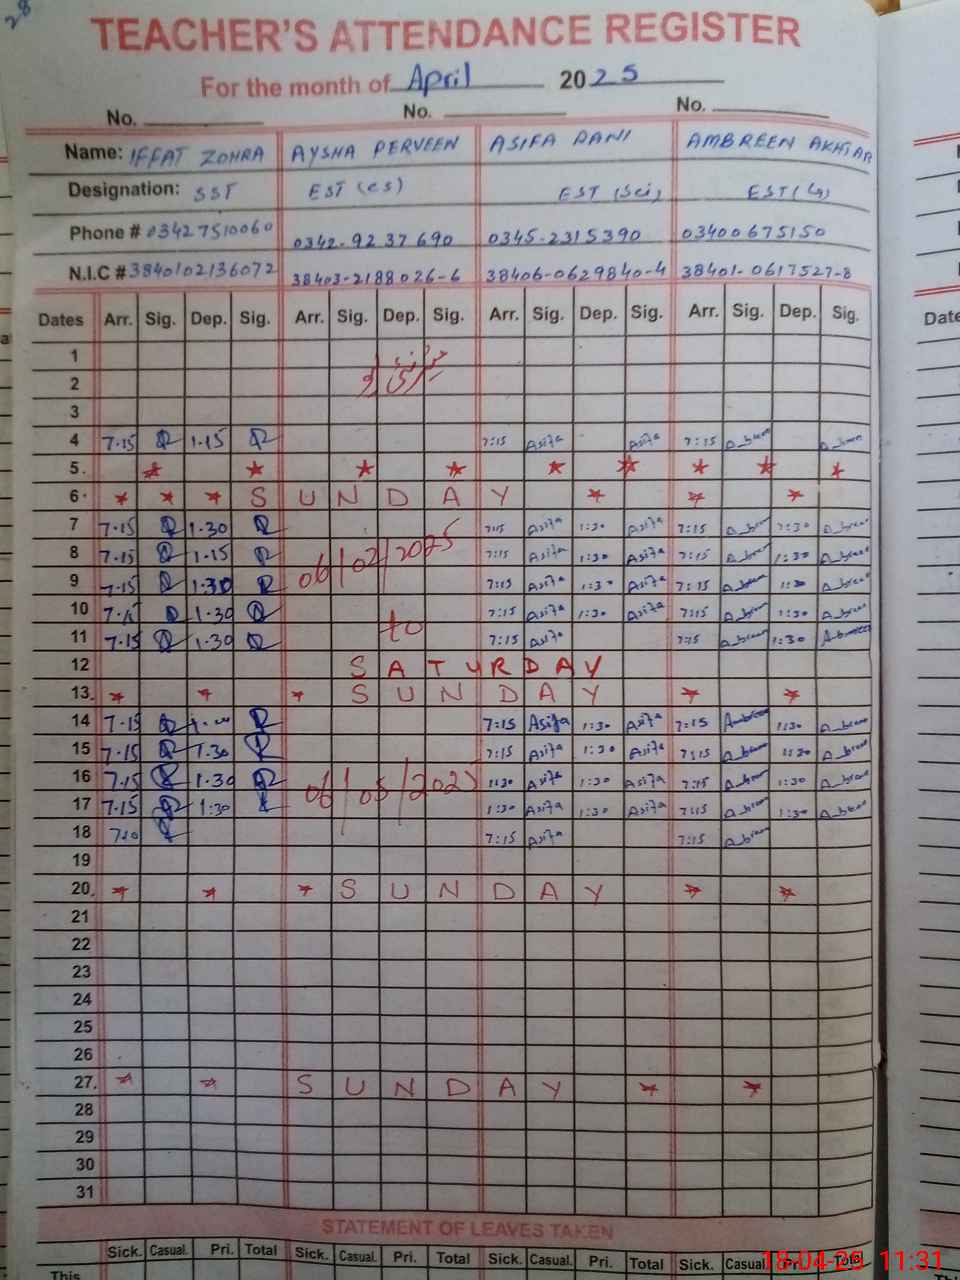 28
TEACHER'S ATTENDANCE REGISTER
For the month of April 2025
No. No. No.
Name: IFFAT ZOHRA AYSHA PERVEEN ASIFA RANI AMBREEN AKHTAR
Designation: SST EST (cs) EST (Sci) EST
Phone # 03427510060 0342-9237690 0345-2315390 03400675150
N.I.C # 3840102136072 38403-2188026-6 38406-0629840-4 38401-0617527-8
Dates Arr. Sig. Dep. Sig. Arr. Sig. Dep. Sig. Arr. Sig. Dep. Sig. Arr. Sig. Dep. Sig.
1
2
3
4 7.15 1.15 7:15 Asifa Asifa 7:15
5.
6. SUNDAY
7 7.15 1.30 7:15 Asifa 1:30 Asifa 7:15 1:30
8 7.15 1.15 06/02/2025 7:15 Asifa 1:30 Asifa 7:15 1:30
9 7.15 1.30 7:15 Asifa 1:30 Asifa 7:15
10 1.30 7:15 Asifa 1:30 Asifa 7:15 1:30
11 7.15 1.30 to 7:15 Asifa 7:15 1:30
12 SATURDAY
13. SUNDAY
14 7.15 7:15 Asifa 1:30 Asifa 7:15 1:30
15 7.15 1.30 7:15 Asifa 1:30 Asifa 7:15 1:30
16 7.15 1.30 06/05/2025 1:30 Asifa 1:30 Asifa 7:15 1:30
17 7.15 1:30 1:30 Asifa 1:30 Asifa 7:15 1:30
18 7:15 Asifa 7:15
19
20. SUNDAY
21
22
23
24
25
26
27. SUNDAY
28
29
30
31
STATEMENT OF LEAVES TAKEN
Sick. Casual. Pri. Total Sick. Casual. Pri. Total Sick. Casual. Pri. Total Sick. Casual. Pri. Total
This
18-04-25 11:31